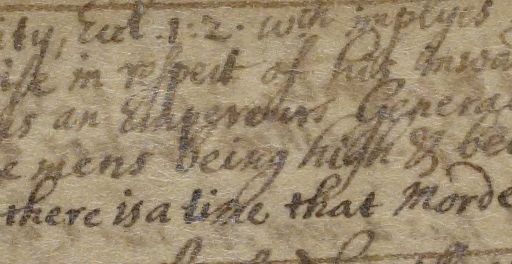 ity, Eccl. 1. 2. wch implyes
ise in respect of his inwa
as an Emperour. Genera
e mens being high & be
there is a time that Morde